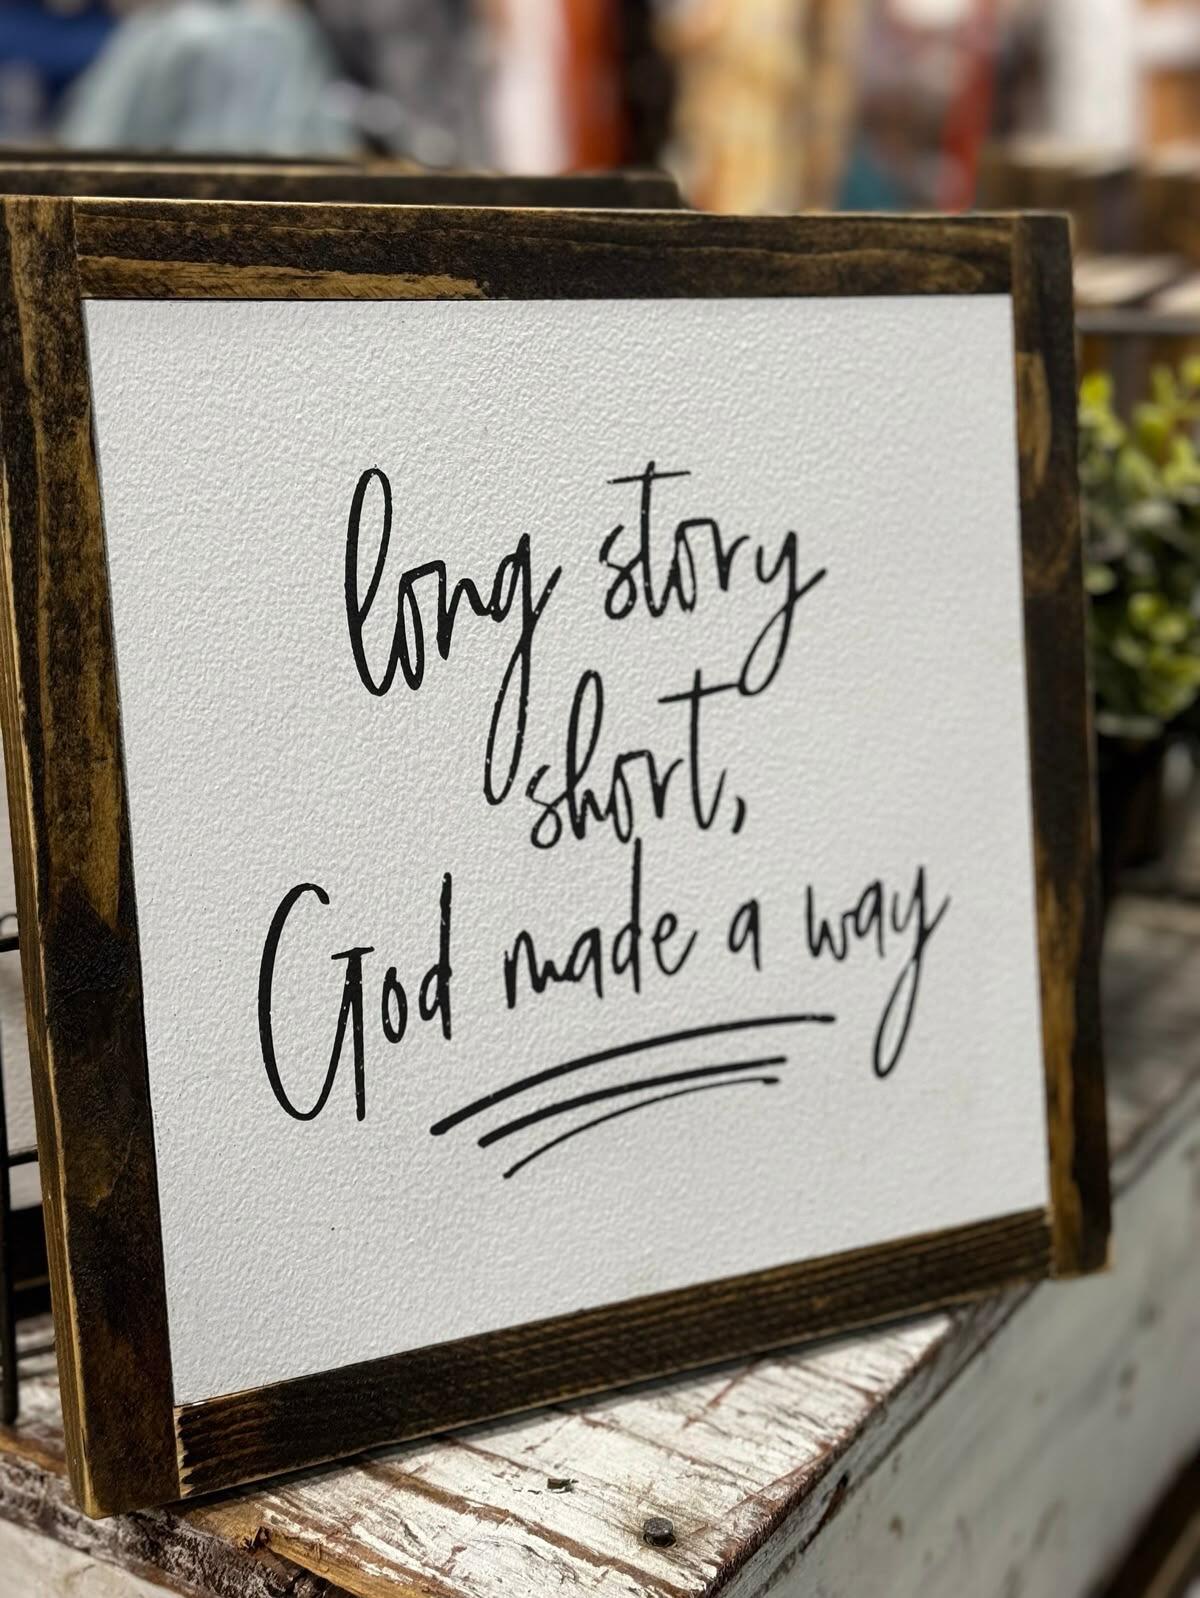 long story
short,
God made a way